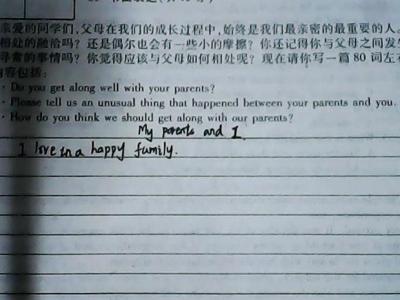 亲爱的同学们,父母在我们的成长过程中,始终是我们最亲密的最重要的人。
相处的融洽吗?还是偶尔也会有一些小的摩擦?你还记得你与父母之间发生
寻常的事情吗?你觉得应该与父母如何相处呢?现在请你写一篇 80 词左
内容包括:
· Do you get along well with your parents?
· Please tell us an unusual thing that happened between your parents and you.
· How do you think we should get along with our parents?
My parents and I.
I live in a happy family.